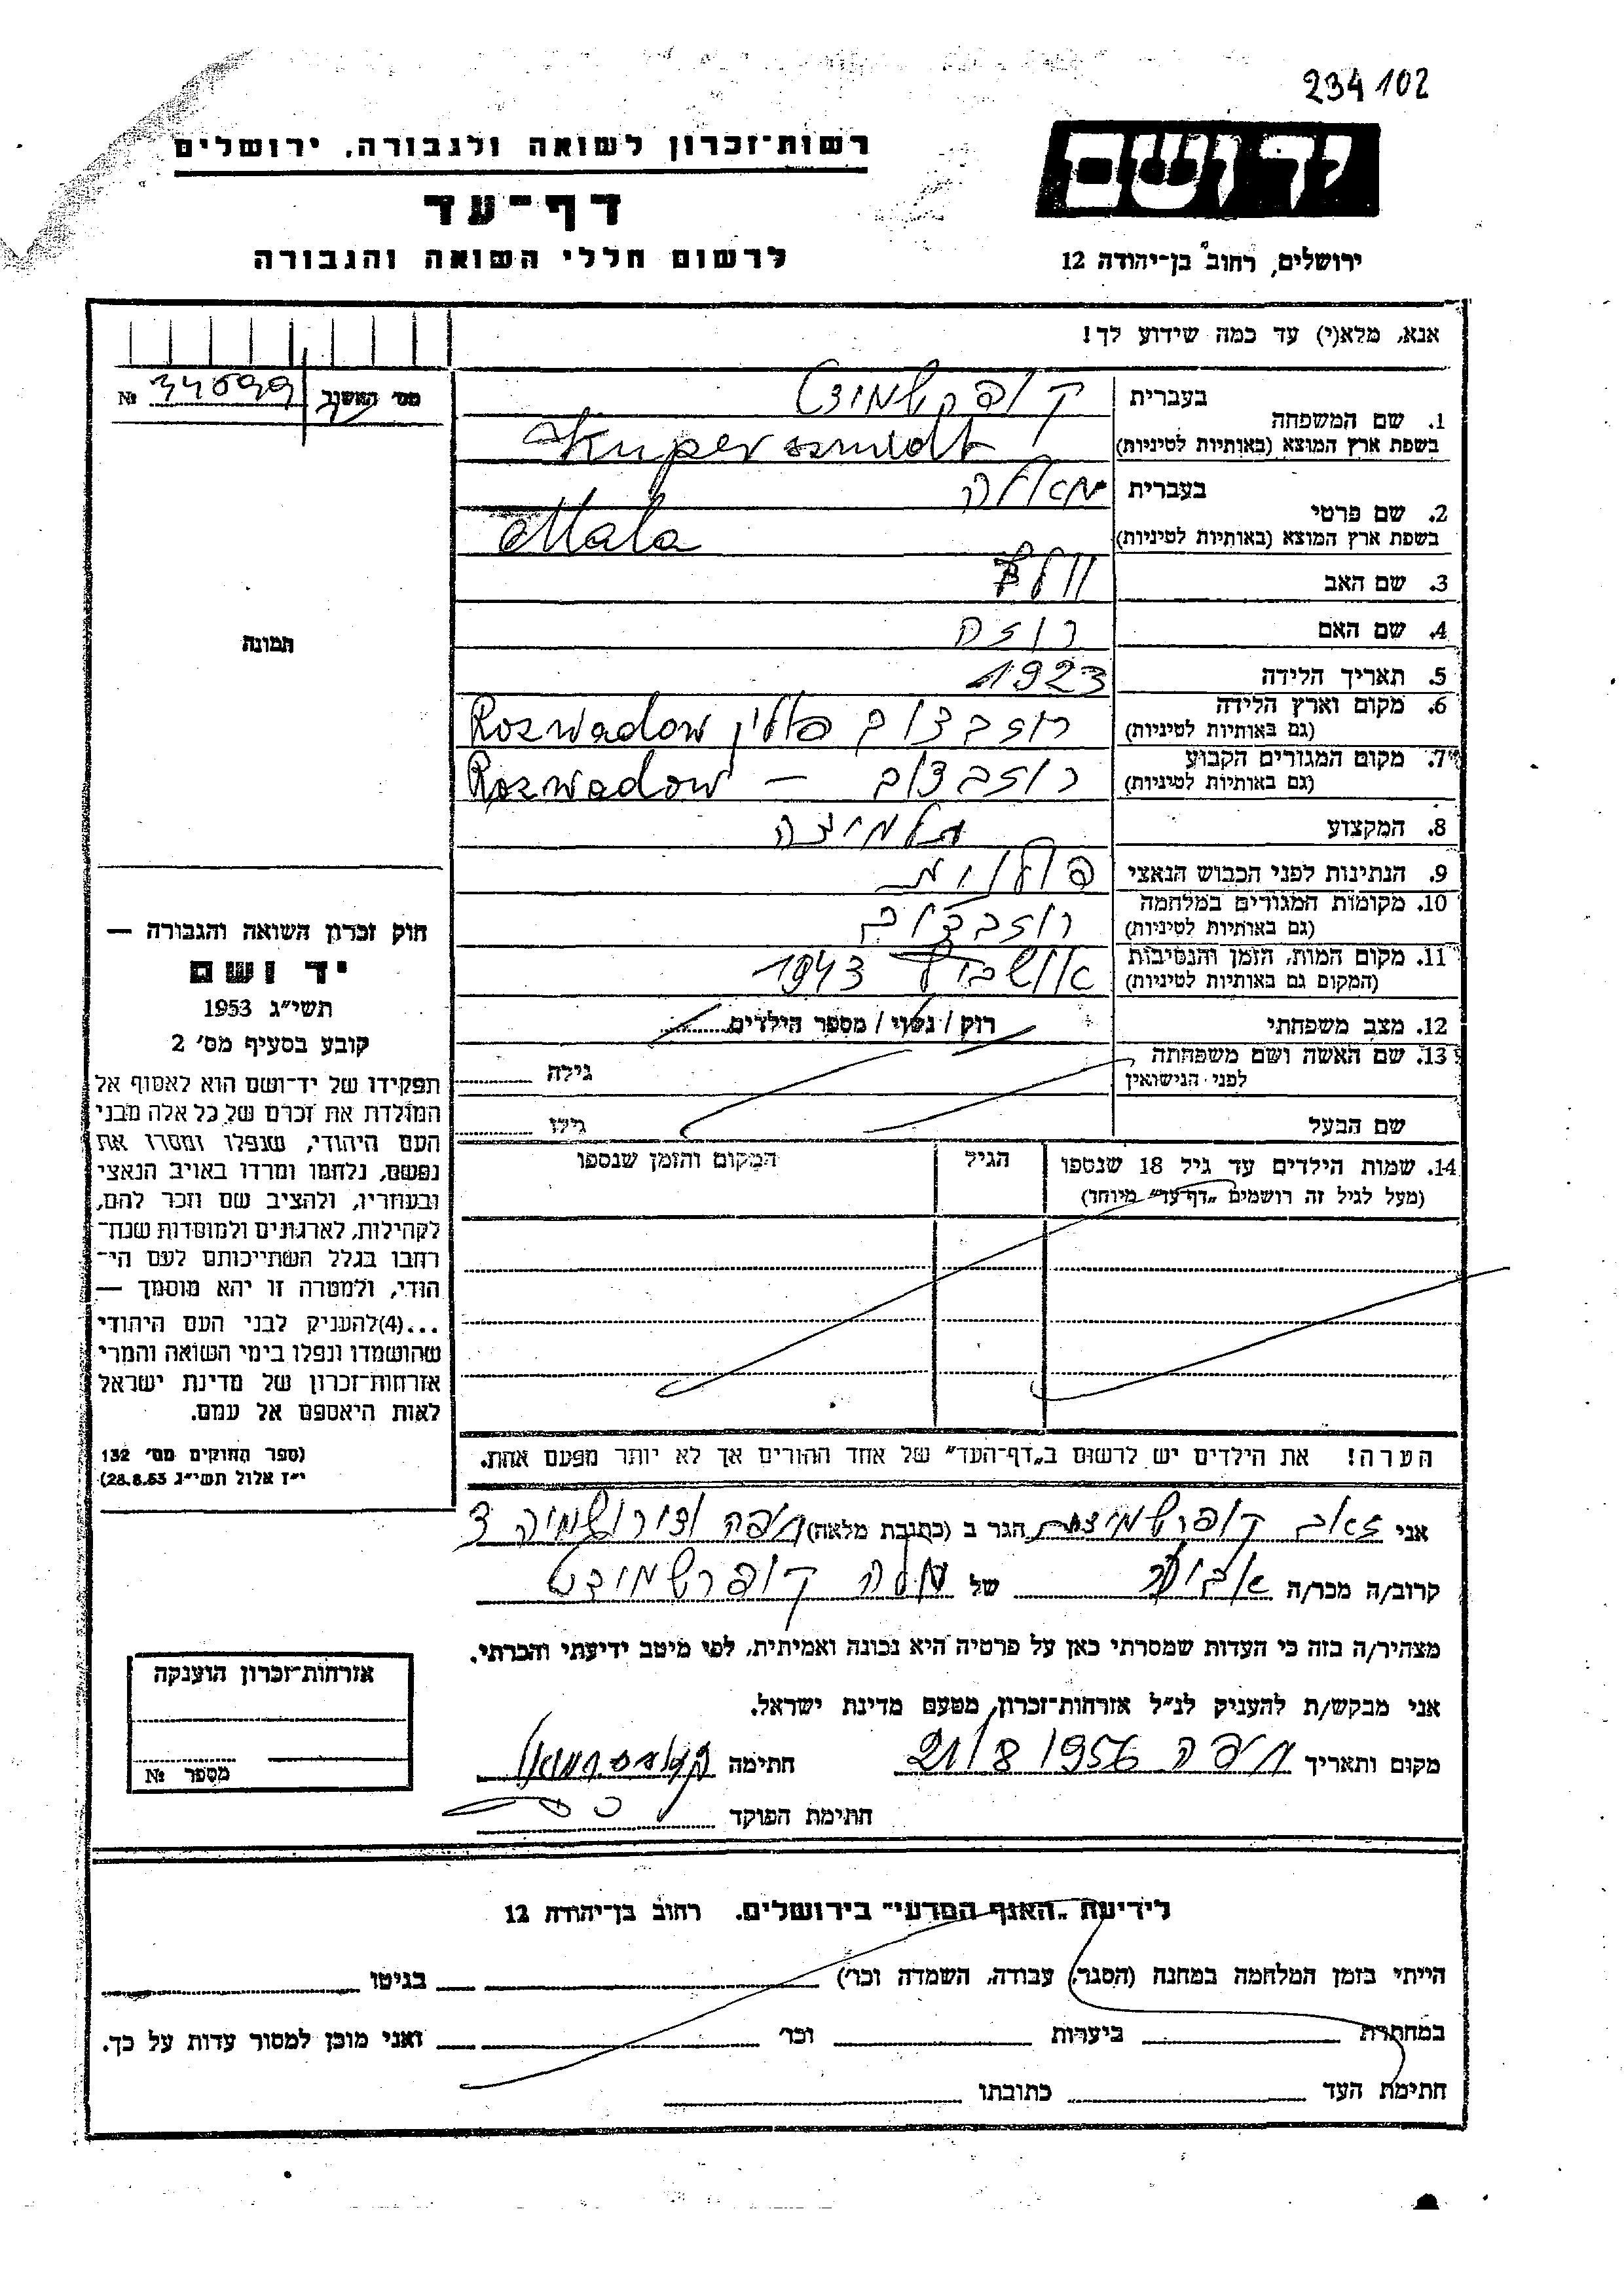 234102
רשות־זכרון לשואה ולגבורה, ירושלים
יד ושם
דף־עד
לרשום חללי השואה והגבורה
ירושלים, רחוב בן־יהודה 12
אנא, מלא(י) עד כמה שידוע לך!
מס׳ האשנב
№ 34699
1. שם המשפחה
בעברית קופרשמידט
בשפת ארץ המוצא (באותיות לטיניות) Kuperszmidt
2. שם פרטי
בעברית מאלה
בשפת ארץ המוצא (באותיות לטיניות) Mala
3. שם האב
4. שם האם רוזה
תמונה
5. תאריך הלידה 1923
6. מקום וארץ הלידה רוזבדוב פולין Rozwadow
(גם באותיות לטיניות)
7. מקום המגורים הקבוע רוזבדוב — Rozwadow
(גם באותיות לטיניות)
8. המקצוע תלמידה
9. הנתינות לפני הכבוש הנאצי פולנית
10. מקומות המגורים במלחמה רוזבדוב
(גם באותיות לטיניות)
11. מקום המות, הזמן והנסיבות אושביץ 1943
(המקום גם באותיות לטיניות)
12. מצב משפחתי רוק / נשוי / מספר הילדים
13. שם האשה ושם משפחתה
לפני הנישואין גילה
שם הבעל גילו
14. שמות הילדים עד גיל 18 שנספו
(מעל לגיל זה רושמים „דף־עד״ מיוחד)
הגיל
המקום והזמן שנספו
הערה! את הילדים יש לרשום ב„דף־העד״ של אחד ההורים אך לא יותר מפעם אחת.
חוק זכרון השואה והגבורה —
יד ושם
תשי״ג 1953
קובע בסעיף מס׳ 2
תפקידו של יד־ושם הוא לאסוף אל
המולדת את זכרם של כל אלה מבני
העם היהודי, שנפלו ומסרו את
נפשם, נלחמו ומרדו באויב הנאצי
ובעוזריו, ולהציב שם וזכר להם,
לקהילות, לארגונים ולמוסדות שנח־
רבו בגלל השתייכותם לעם הי־
הודי, ולמטרה זו יהא מוסמך —
...(4) להעניק לבני העם היהודי
שהושמדו ונפלו בימי השואה והמרי
אזרחות־זכרון של מדינת ישראל
לאות היאספם אל עמם.
(ספר החוקים מס׳ 132
י״ז אלול תשי״ג 28.8.53)
אני זאב קופרשמידט הגר ב (כתובת מלאה) חיפה
קרוב/ה מכר/ה של מלה קופרשמידט
מצהיר/ה בזה כי העדות שמסרתי כאן על פרטיה היא נכונה ואמיתית, לפי מיטב ידיעתי והכרתי.
אני מבקש/ת להעניק לנ״ל אזרחות־זכרון, מטעם מדינת ישראל.
מקום ותאריך חיפה 21/8 1956 חתימה
חתימת הפוקד
אזרחות־זכרון הוענקה
מספר №
לידיעת „האגף המדעי״ בירושלים. רחוב בן־יהודה 12
הייתי בזמן המלחמה במחנה (הסגר, עבודה, השמדה וכו׳) בגיטו
במחתרת ביערות וכו׳ ואני מוכן למסור עדות על כך.
חתימת העד כתובתו